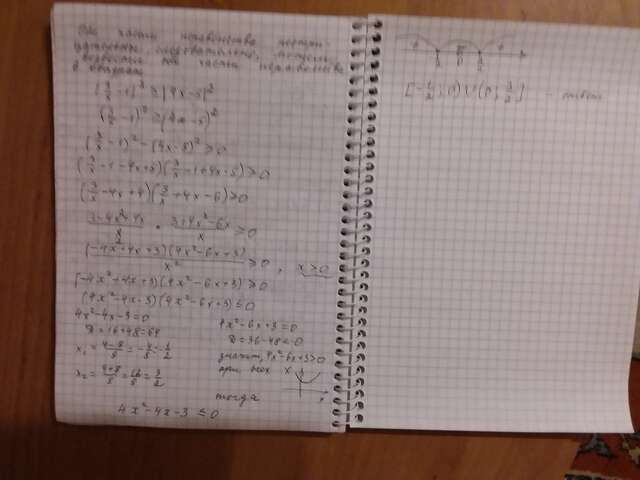 обе части неравенства
следовательно,
возвести обе части неравенства
в квадрат
|3/x - 1|² ≥ |4x-5|²
(3/x - 1)² ≥ (4x-5)²
(3/x - 1)² - (4x-5)² ≥ 0
(3/x - 1 - 4x+5)(3/x - 1 + 4x - 5) ≥ 0
(3/x - 4x + 4)(3/x + 4x - 6) ≥ 0
3-4x²+4x/x · 3+4x²-6x/x ≥ 0
(-4x²+4x+3)(4x²-6x+3)/x² ≥ 0, x>0
(-4x²+4x+3)(4x²-6x+3) ≥ 0
(4x²-4x-3)(4x²-6x+3) ≤ 0
4x²-4x-3=0
D=16+48=64
x₁ = 4-8/8 = -4/8 = -1/2
x₂ = 4+8/8 = 12/8 = 3/2
4x²-6x+3=0
D=36-48<0
значит, 4x²-6x+3>0
при всех x
x
тогда
4x²-4x-3 ≤ 0
+ - - +
0
[-1/2; 0) ∪ (0; 3/2] - ответ